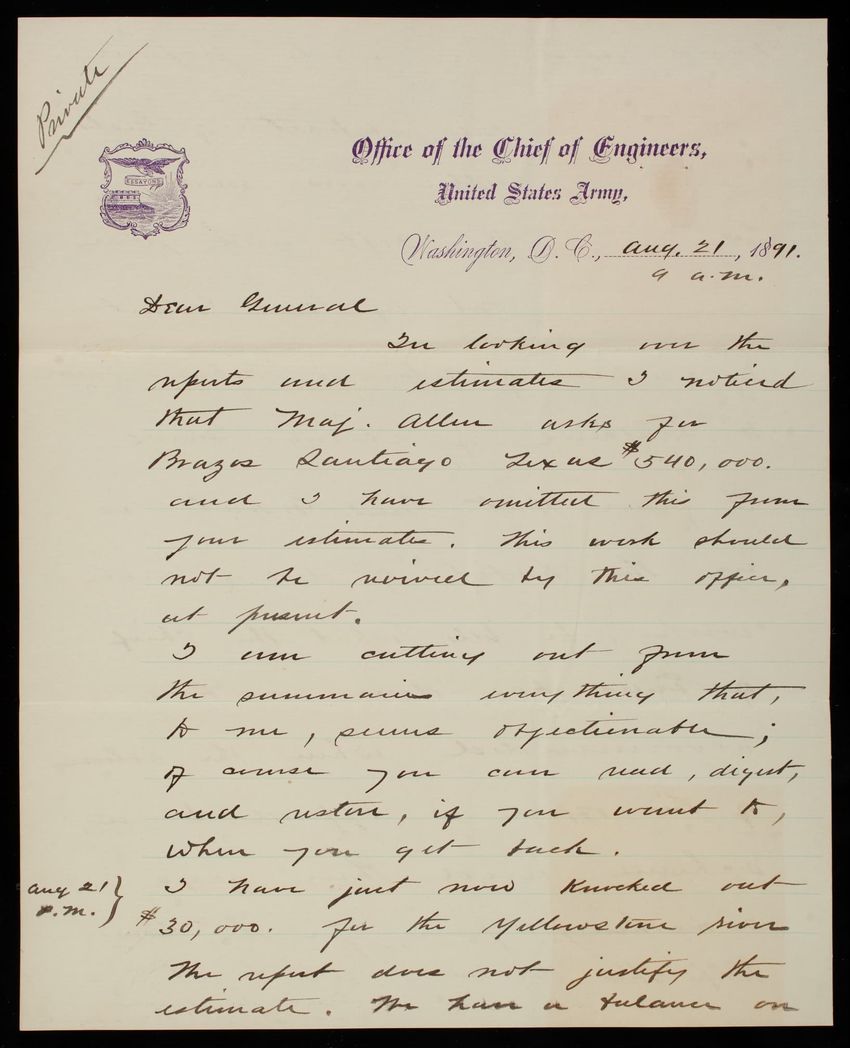 Private
ESSAYONS
Office of the Chief of Engineers,
United States Army,
Washington, D. C., Aug. 21, 1891.
9 a.m.
Dear General
In looking over the
reports and estimates I noticed
that Maj. Allen asks for
Brazos Santiago Texas $540,000.
and I have omitted this from
your estimates. This work should
not be revived by this office,
at present.
I am cutting out from
the summaries everything that,
to me, seems objectionable;
of course you can read, digest,
and restore, if you want to,
when you get back.
Aug 21
P.M. }
I have just now knocked out
$30,000. for the Yellowstone river
The report does not justify the
estimate. We have a balance on